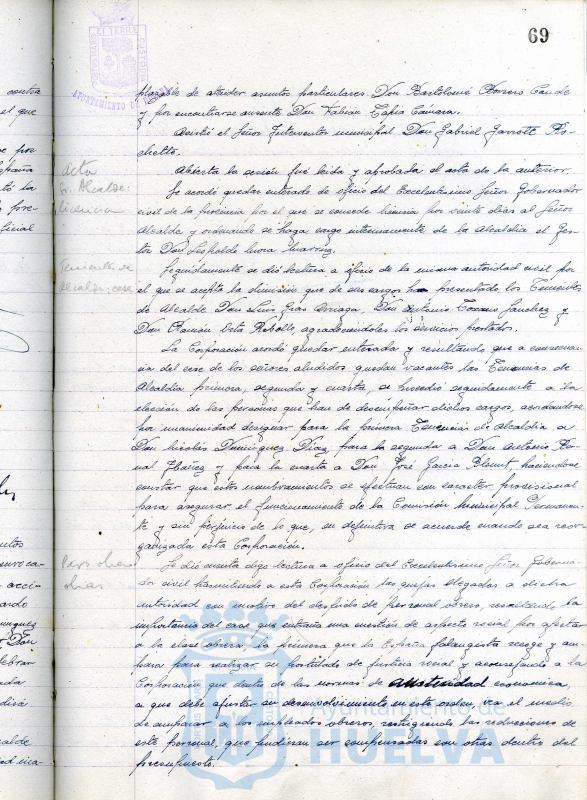 69
plazable de atender asuntos particulares Don Bartolomé Borrero Conde
y por encontrarse ausente Don Fabián Tapia Cámara.
Asistió el Señor Interventor municipal Don Gabriel Garrote
Abierta la sesión fué leída y aprobada el acta de la anterior.
Se acordó quedar enterado de oficio del Excelentísimo Señor Gobernador
civil de la provincia por el que se concede licencia por veinte días al Señor
Alcalde y ordenando se haga cargo interinamente de la Alcaldía el Ges-
tor Don Leopoldo
Seguidamente se dió lectura a oficio de la misma autoridad civil por
el que se acepta la dimisión que de sus cargos han presentado los Tenientes
de Alcalde Don Luis Gras Arriaga, Don Antonio Toscano Sanchez y
Don Ramón Orta Rebollo, agradeciendoles los servicios prestados.
La Corporación acordó quedar enterada y resultando que a consecuen-
cia del cese de los señores aludidos quedan vacantes las Tenencias de
Alcaldía primera, segunda y cuarta, se procedió seguidamente a la
elección de las personas que han de desempeñar dichos cargos, acordandose
por unanimidad designar para la primera Tenencia de Alcaldía a
Don Nicolás Dominguez Díaz, para la segunda a Don Antonio
y para la cuarta a Don José Garcia haciendose
constar que estos nombramientos se efectuan con caracter provisional
para asegurar el funcionamiento de la Comisión Municipal Permanen-
te y sin perjuicio de lo que, en definitiva se acuerde cuando sea reor-
ganizada esta Corporación.
Se dió cuenta digo lectura a oficio del Excelentísimo Señor Goberna-
dor civil trasmitiendo a esta Corporación las quejas llegadas a dicha
autoridad con motivo del despido de personal obrero, resaltando la
importancia del caso que entraña una cuestión de aspecto social por afectar
a la clase obrera la primera que la España falangista recoge y am-
para para realizar su postulado de justicia social y aconsejando a la
Corporación que dentro de las normas de austeridad economica,
a que debe ajustar su desenvolvimiento en este orden, vea el medio
de amparar a los empleados obreros, restringiendo las reducciones de
este personal, que pudieran ser compensadas con otras dentro del
presupuesto.
acta
Sr. Alcalde:
licencia
Tenientes de
alcalde: cese
Personal
contra
el que
España
final
Don
Ayuntamiento de
HUELVA